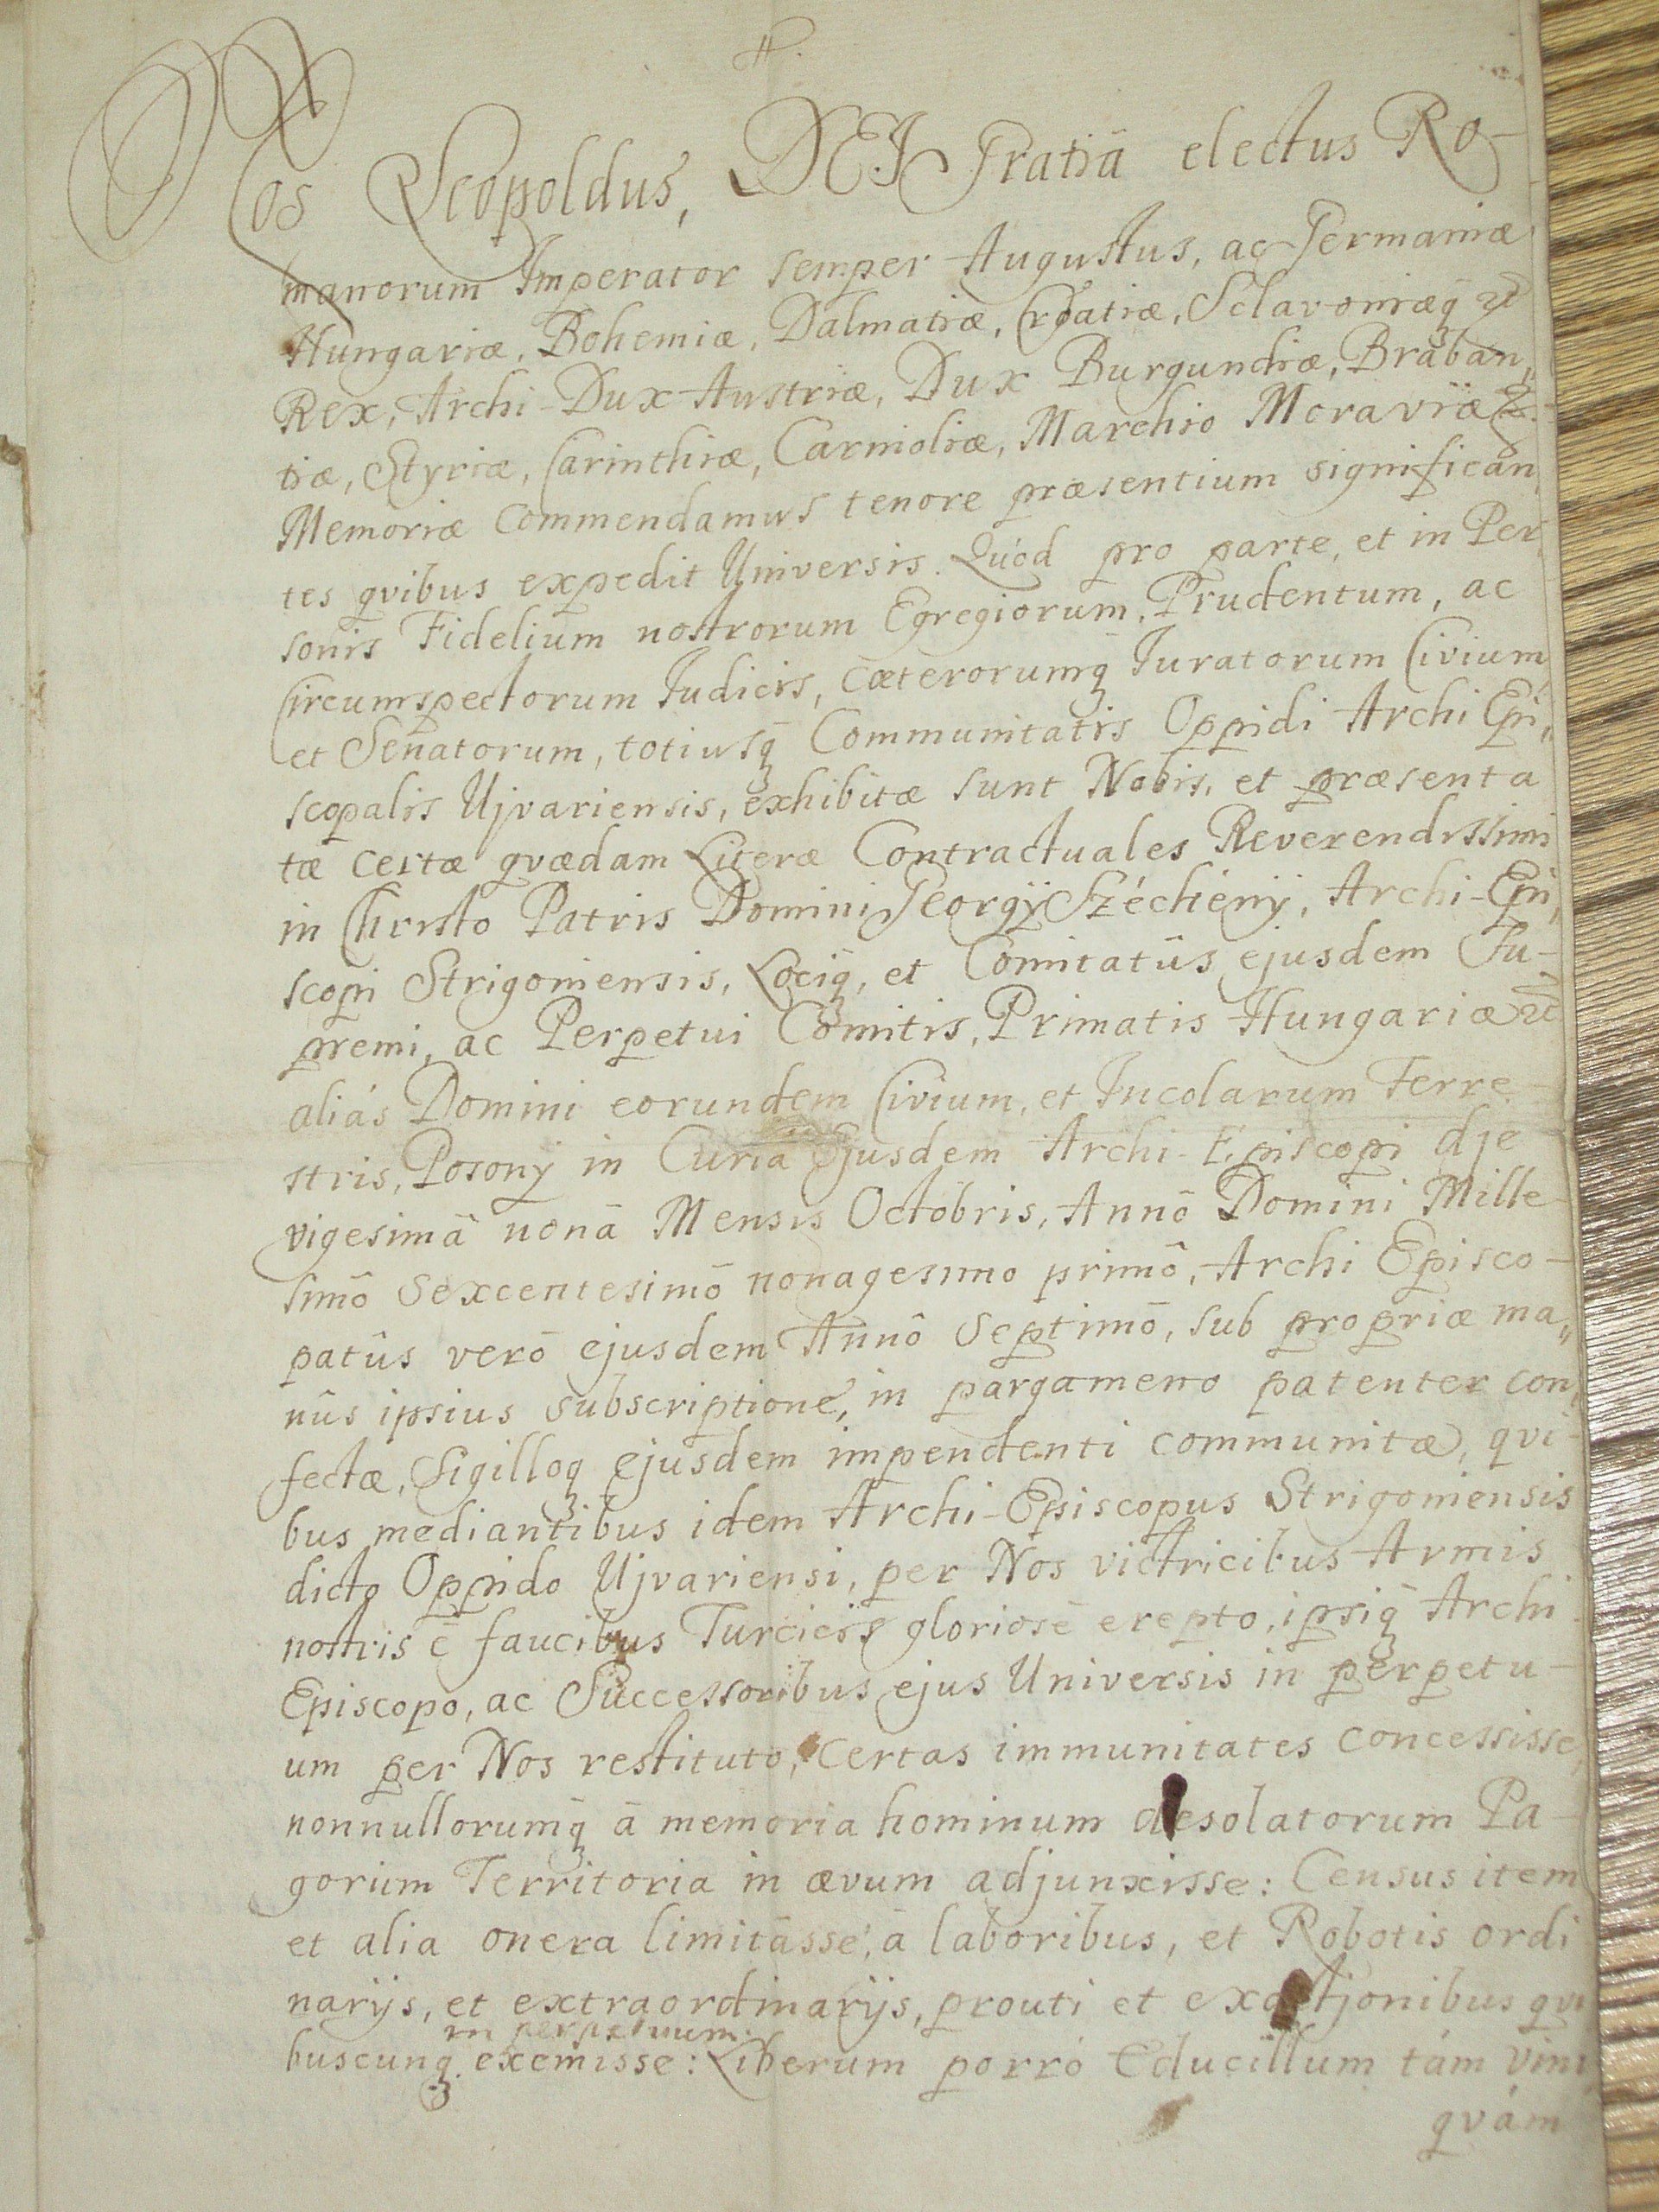 Nos Leopoldus, DEI Gratiâ electus Ro-
manorum Imperator semper Augustus, ac Germaniæ
Hungariæ, Bohemiæ, Dalmatiæ, Croatiæ, Sclavoniæq̃ &
Rex, Archi-Dux Austriæ, Dux Burgundiæ, Braban,,
tiæ, Styriæ, Carinthiæ, Carnioliæ, Marchio Moraviæ &
Memoriæ Commendamus tenore præsentium significan,,
tes qvibus expedit Universis. Quód pro parte, et in Per,,
sonis Fidelium nostrorum Egregiorum, Prudentum, ac
Circumspectorum Judicis, cæterorumq̃ Juratorum Civium
et Senatorum, totiusq̃ Communitatis Oppidi Archi Epi,,
scopalis Ujvariensis, exhibitæ sunt Nobis, et præsenta
tæ certæ qvædam Literæ Contractuales Reverendissimi
in Christo Patris Domini Georgÿ Szécheny̋, Archi-Epi,,
scopi Strigoniensis, Lociq̃, et Comitatûs ejusdem Su-
premi, ac Perpetui Comitis, Primatis Hungariæ &
aliás Domini eorundem Civium, et Incolarum Terre-
stris, Posony in Curia Ejusdem Archi-Episcopi die
vigesimâ nonâ Mensis Octobris, Annô Domini Mille-
simô Sexcentesimô nonagesimo primô, Archi Episco-
patûs verô ejusdem Annô Septimô, sub propriæ ma,,
nûs ipsius subscriptione, in pargameno patenter con,,
fectæ, Sigilloq̃ ejusdem impendenti communitæ, qvi-
bus mediantibus idem Archi-Episcopus Strigoniensis
dicto Oppido Ujvariensi, per Nos victricibus Armis
nostris ê faucibus Turcicis gloriosê erepto, ipsiq̃ Archi-
Episcopo, ac Successoribus ejus Universis in perpetu-
um per Nos restituto, Certas immunitates concessisse,
nonnullorumq̃ â memoria hominum desolatorum Pa-
gorum Territoria in ævum adjunxisse: Census item
et alia onera limitâsse, â laboribus, et Robotis ordi
narijs, et extraordinarijs, prouti et exactjonibus qvi
in perpetuum
buscunq̃ exemisse: Liberum porró Educillum tám vini
qvám